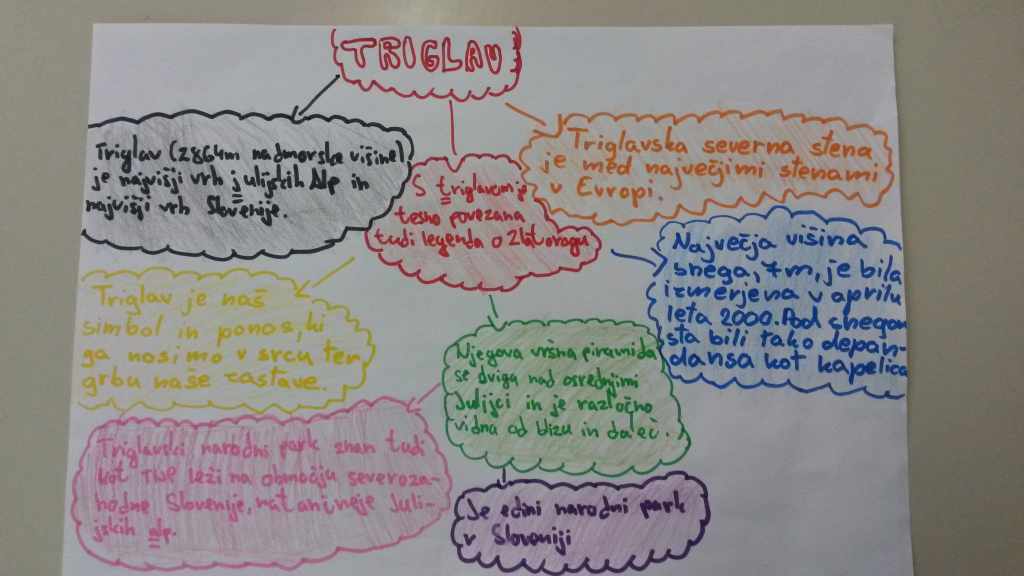 TRIGLAV
Triglav (2864m nadmorske višine)
je najvišji vrh julijskih Alp in
najvišji vrh Slovenije.
S triglavom je
tesno povezana
tudi legenda o Zlatorogu
Triglavska severna stena
je med največjimi stenami
v Evropi.
Največja višina
snega, 7m, je bila
izmerjena v aprilu
leta 2000. Pod snegom
sta bili tako depan-
dansa kot kapelica
Triglav je naš
simbol in ponos, ki
ga nosimo v srcu ter
grbu naše zastave.
Njegova vršna piramida
se dviga nad osrednjimi
Julijci in je razločno
vidna od blizu in daleč.
Triglavski narodni park znan tudi
kot TNP leži na območju severoza-
hodne Slovenije, natančneje Juli-
jskih alp.
Je edini narodni park
v Sloveniji